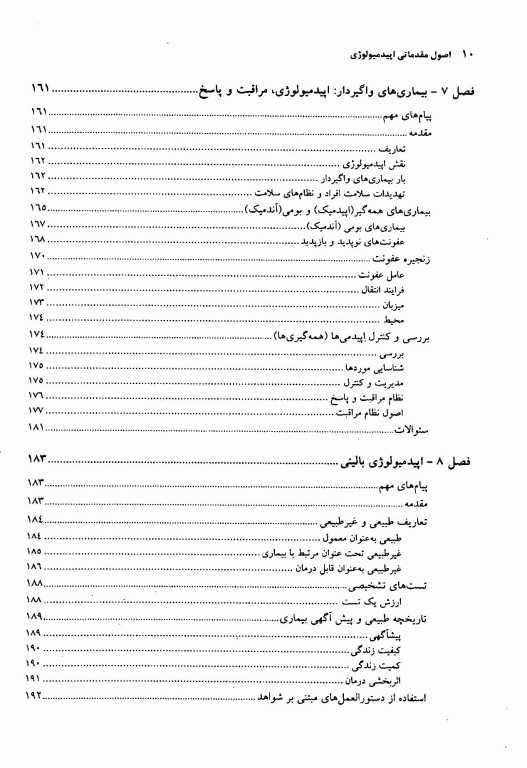 ۱۰ اصول مقدماتی اپیدمیولوژی
فصل ۷ - بیماری‌های واگیردار: اپیدمیولوژی، مراقبت و پاسخ ۱۶۱
پیام‌های مهم ۱۶۱
مقدمه ۱۶۱
تعاریف ۱۶۱
نقش اپیدمیولوژی ۱۶۲
بار بیماری‌های واگیردار ۱۶۲
تهدیدات سلامت افراد و نظام‌های سلامت ۱۶۲
بیماری‌های همه‌گیر(اپیدمیک) و بومی(آندمیک) ۱۶۵
بیماری‌های بومی (آندمیک) ۱۶۷
عفونت‌های نوپدید و بازپدید ۱۶۸
زنجیره عفونت ۱۷۰
عامل عفونت ۱۷۱
فرایند انتقال ۱۷۲
میزبان ۱۷۳
محیط ۱۷۴
بررسی و کنترل اپیدمی‌ها (همه‌گیری‌ها) ۱۷۴
بررسی ۱۷۴
شناسایی موردها ۱۷۵
مدیریت و کنترل ۱۷۵
نظام مراقبت و پاسخ ۱۷۶
اصول نظام مراقبت ۱۷۷
سئوالات ۱۸۱
فصل ۸ - اپیدمیولوژی بالینی ۱۸۳
پیام‌های مهم ۱۸۳
مقدمه ۱۸۳
تعاریف طبیعی و غیرطبیعی ۱۸۴
طبیعی به‌عنوان معمول ۱۸۴
غیرطبیعی تحت عنوان مرتبط با بیماری ۱۸۵
غیرطبیعی به‌عنوان قابل درمان ۱۸۶
تست‌های تشخیصی ۱۸۸
ارزش یک تست ۱۸۸
تاریخچه طبیعی و پیش آگهی بیماری ۱۸۹
پیش‌آگهی ۱۸۹
کیفیت زندگی ۱۹۰
کمیت زندگی ۱۹۰
اثربخشی درمان ۱۹۱
استفاده از دستورالعمل‌های مبتنی بر شواهد ۱۹۲